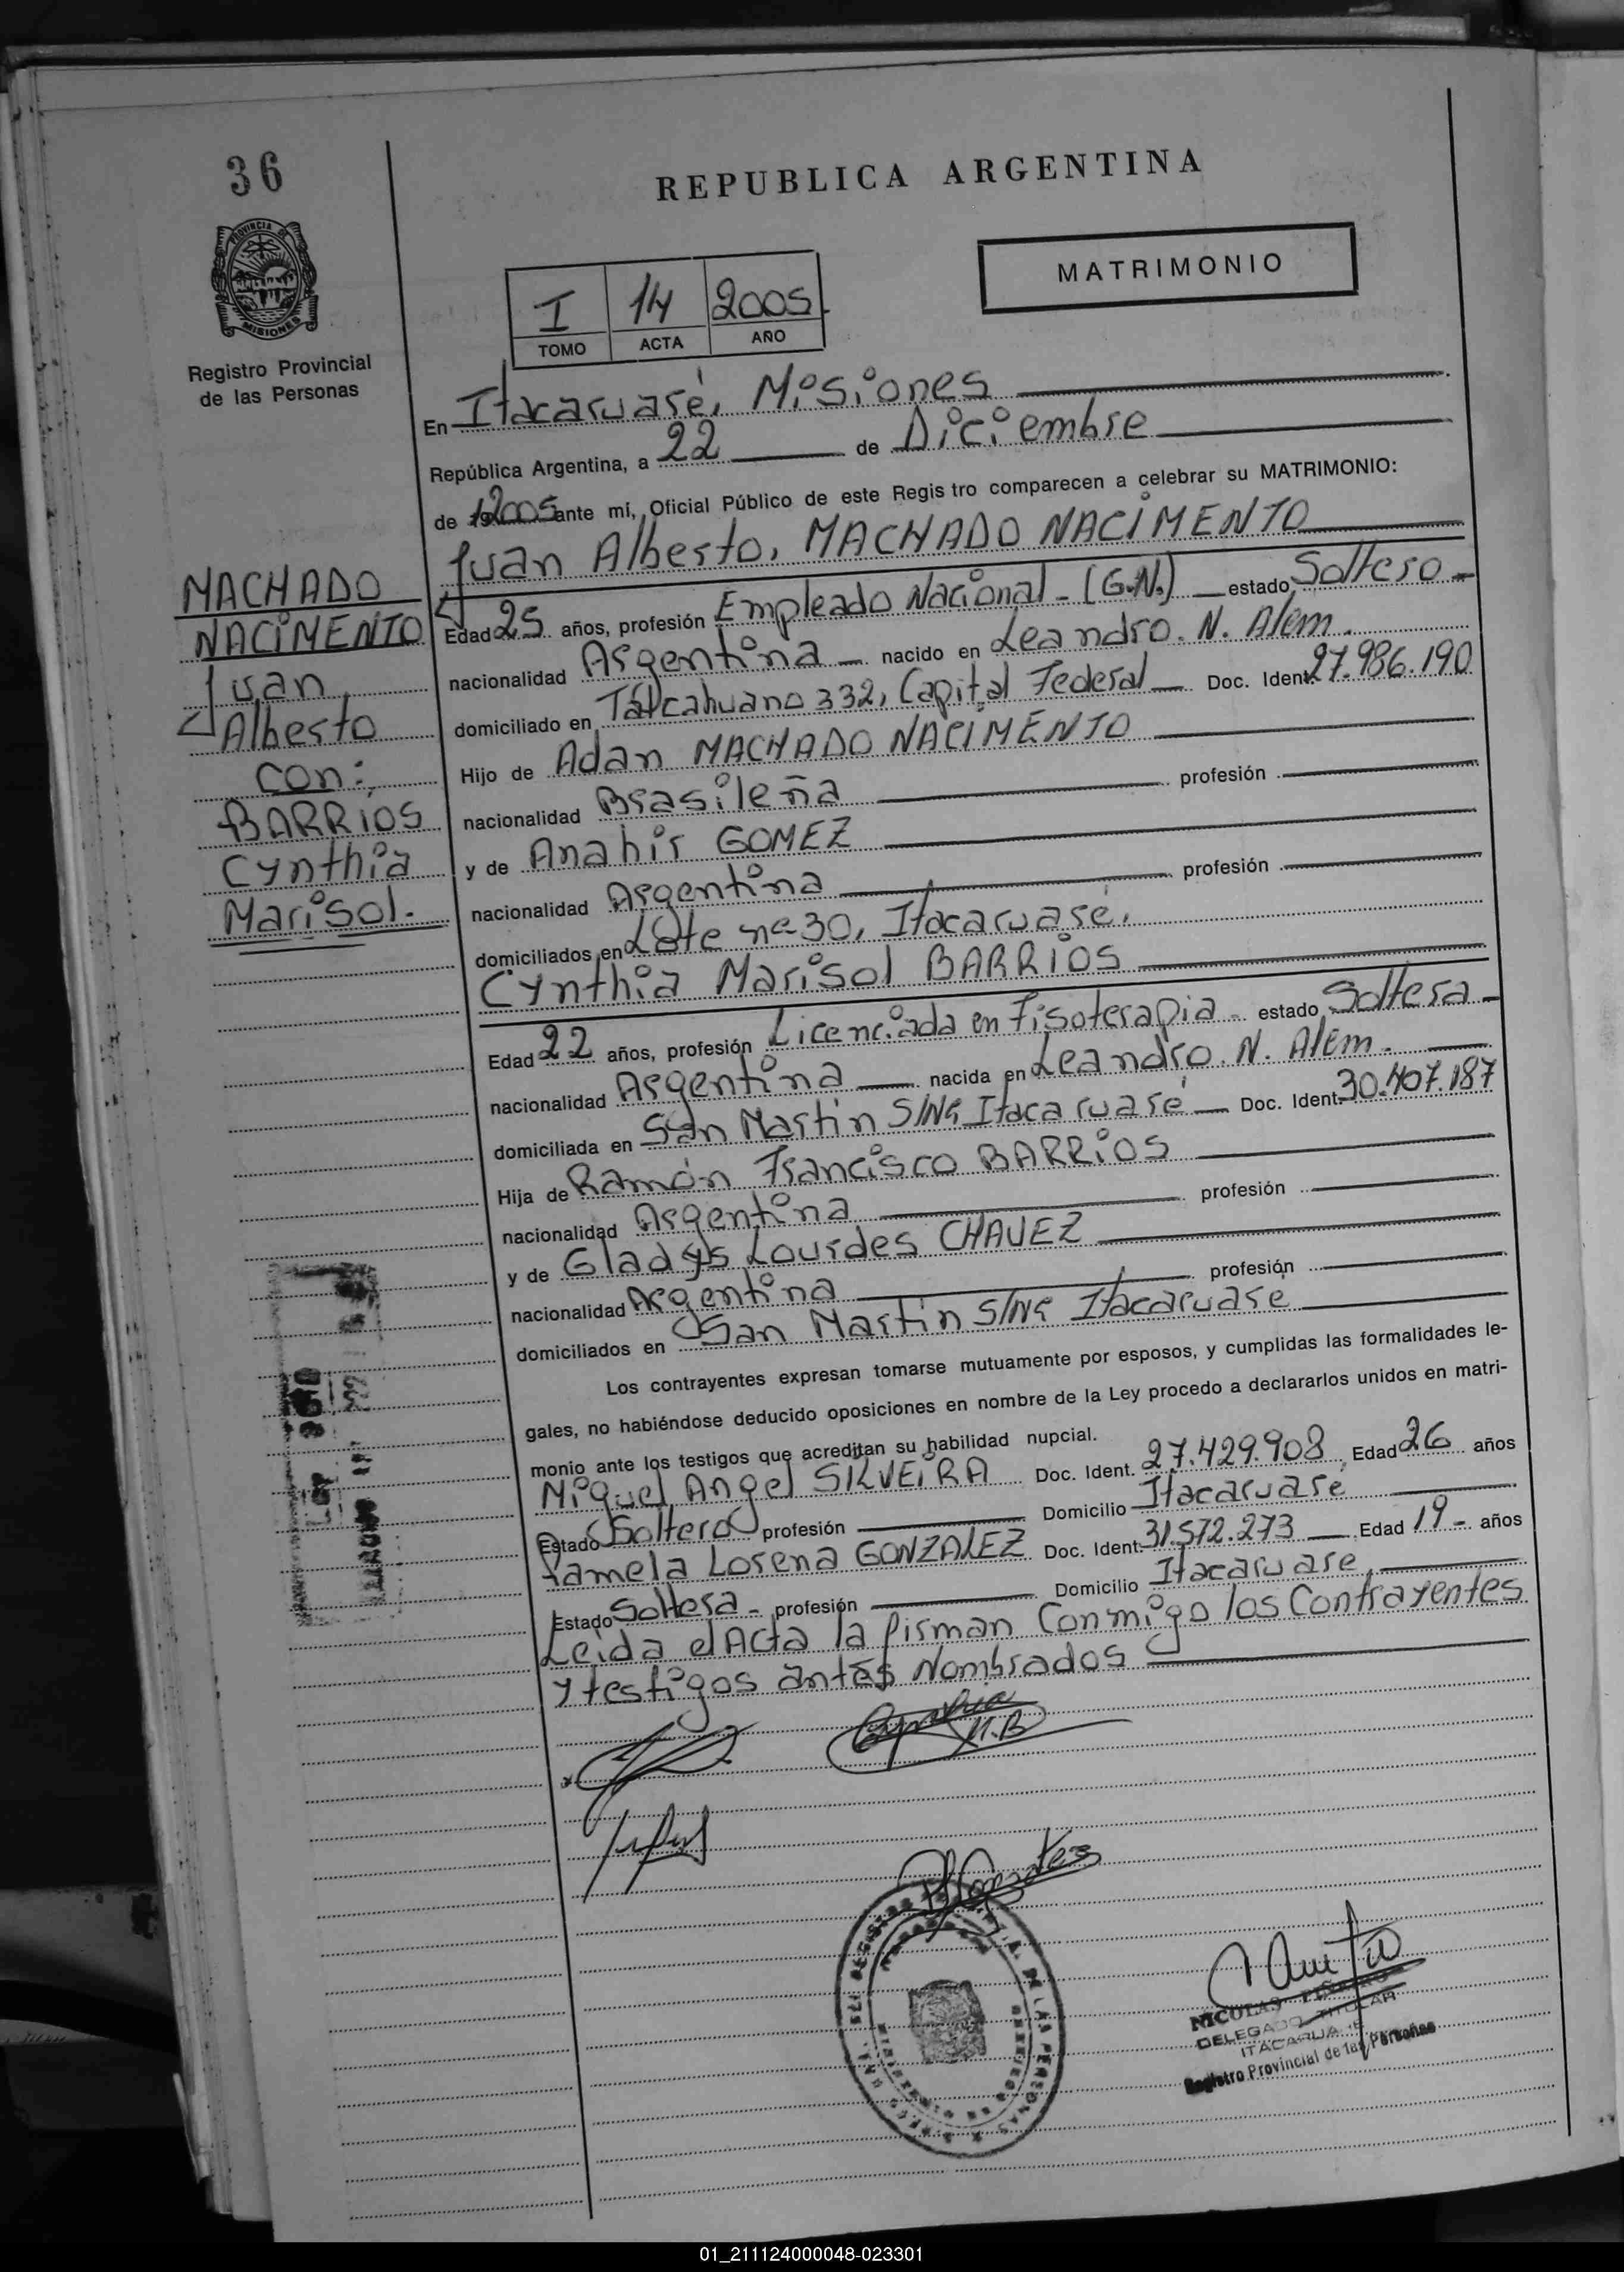 36
REPUBLICA ARGENTINA
PROVINCIA DE
MISIONES
MATRIMONIO
I 14 2005
TOMO ACTA AÑO
Registro Provincial
de las Personas
En Itacaruaré, Misiones
República Argentina, a 22 de Diciembre
de 19 2005 ante mí, Oficial Público de este Regis tro comparecen a celebrar su MATRIMONIO:
Juan Alberto, MACHADO NACIMENTO
MACHADO
NACIMENTO
Juan
Alberto
con:
BARRIOS
Cynthia
Marisol.
Edad 25 años, profesión Empleado Nacional - (G.N.) estado Soltero -
nacionalidad Argentina nacido en Leandro. N. Alem.
domiciliado en Talcahuano 332, Capital Federal Doc. Ident. 27.986.190
Hijo de Adan MACHADO NACIMENTO
nacionalidad Brasileña profesión
y de Anahir GOMEZ
nacionalidad Argentina profesión
domiciliados en Lote nº 30, Itacaruaré.
Cynthia Marisol BARRIOS
Edad 22 años, profesión Licenciada en Fisoterapia - estado Soltera -
nacionalidad Argentina nacida en Leandro. N. Alem.
domiciliada en San Martin S/Nº Itacaruaré Doc. Ident. 30.407.187
Hija de Ramón Francisco BARRIOS
nacionalidad Argentina profesión
y de Gladys Lourdes CHAVEZ
nacionalidad Argentina profesión
domiciliados en San Martin S/Nº Itacaruaré
Los contrayentes expresan tomarse mutuamente por esposos, y cumplidas las formalidades le-
gales, no habiéndose deducido oposiciones en nombre de la Ley procedo a declararlos unidos en matri-
monio ante los testigos que acreditan su habilidad nupcial.
Miguel Angel SILVEIRA Doc. Ident. 27.429.908 Edad 26 años
Estado Soltero profesión Domicilio Itacaruaré
Pamela Lorena GONZALEZ Doc. Ident. 31.572.273 Edad 19 - años
Estado Soltera - profesión Domicilio Itacaruare,
Leida el Acta la firman Conmigo los Contrayentes
y testigos antes Nombrados
Cynthia
M.B
NICOLAS PIÑEYRO
DELEGADO TITULAR
ITACARUARE
Registro Provincial de las Personas
01_211124000048-023301